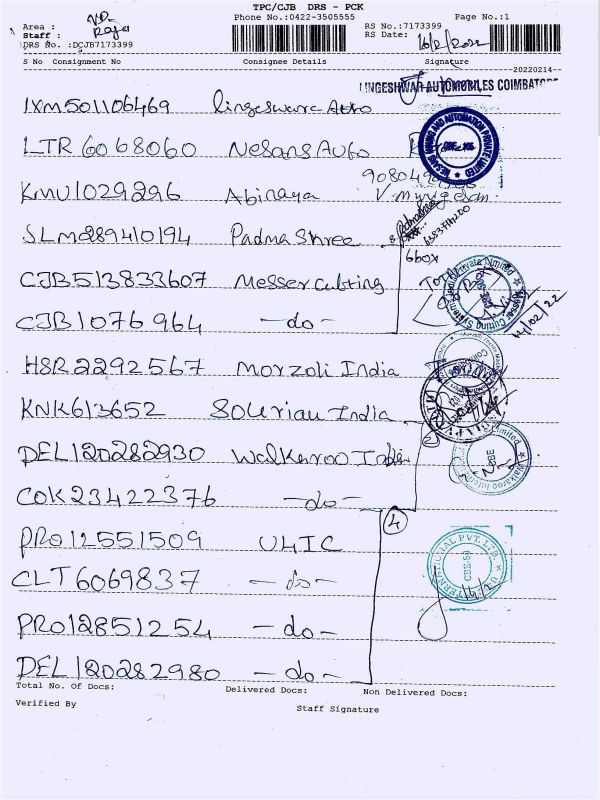 TPC/CJB DRS - PCK
Phone No.:0422-3505555
Page No.:1
Area :
Staff : Raja
DRS No. :DCJB7173399
RS No.:7173399
RS Date: 16/2/2022
S No Consignment No Consignee Details Signature
20220214
LINGESHWAR AUTOMOBILES COIMBATORE
IXM501106469 lingeswara Auto
LTR6068060 Nesans Auto
KMU1029296 Abinaya V. Murugesan
SLM289410194 Padma Shree
6 box
CJB513833607 Messer cutting
CJB1076964 -do-
14/02/22
HSR2292567 Morzoli India
KNK613652 Souriau India
DEL120282930 Walkaroo Inter
COK23422376 -do-
4
PRO12551509 U4IC
CLT6069837 -do-
PRO12851254 -do-
DEL120282980 -do-
Total No. Of Docs: Delivered Docs: Non Delivered Docs:
Verified By Staff Signature